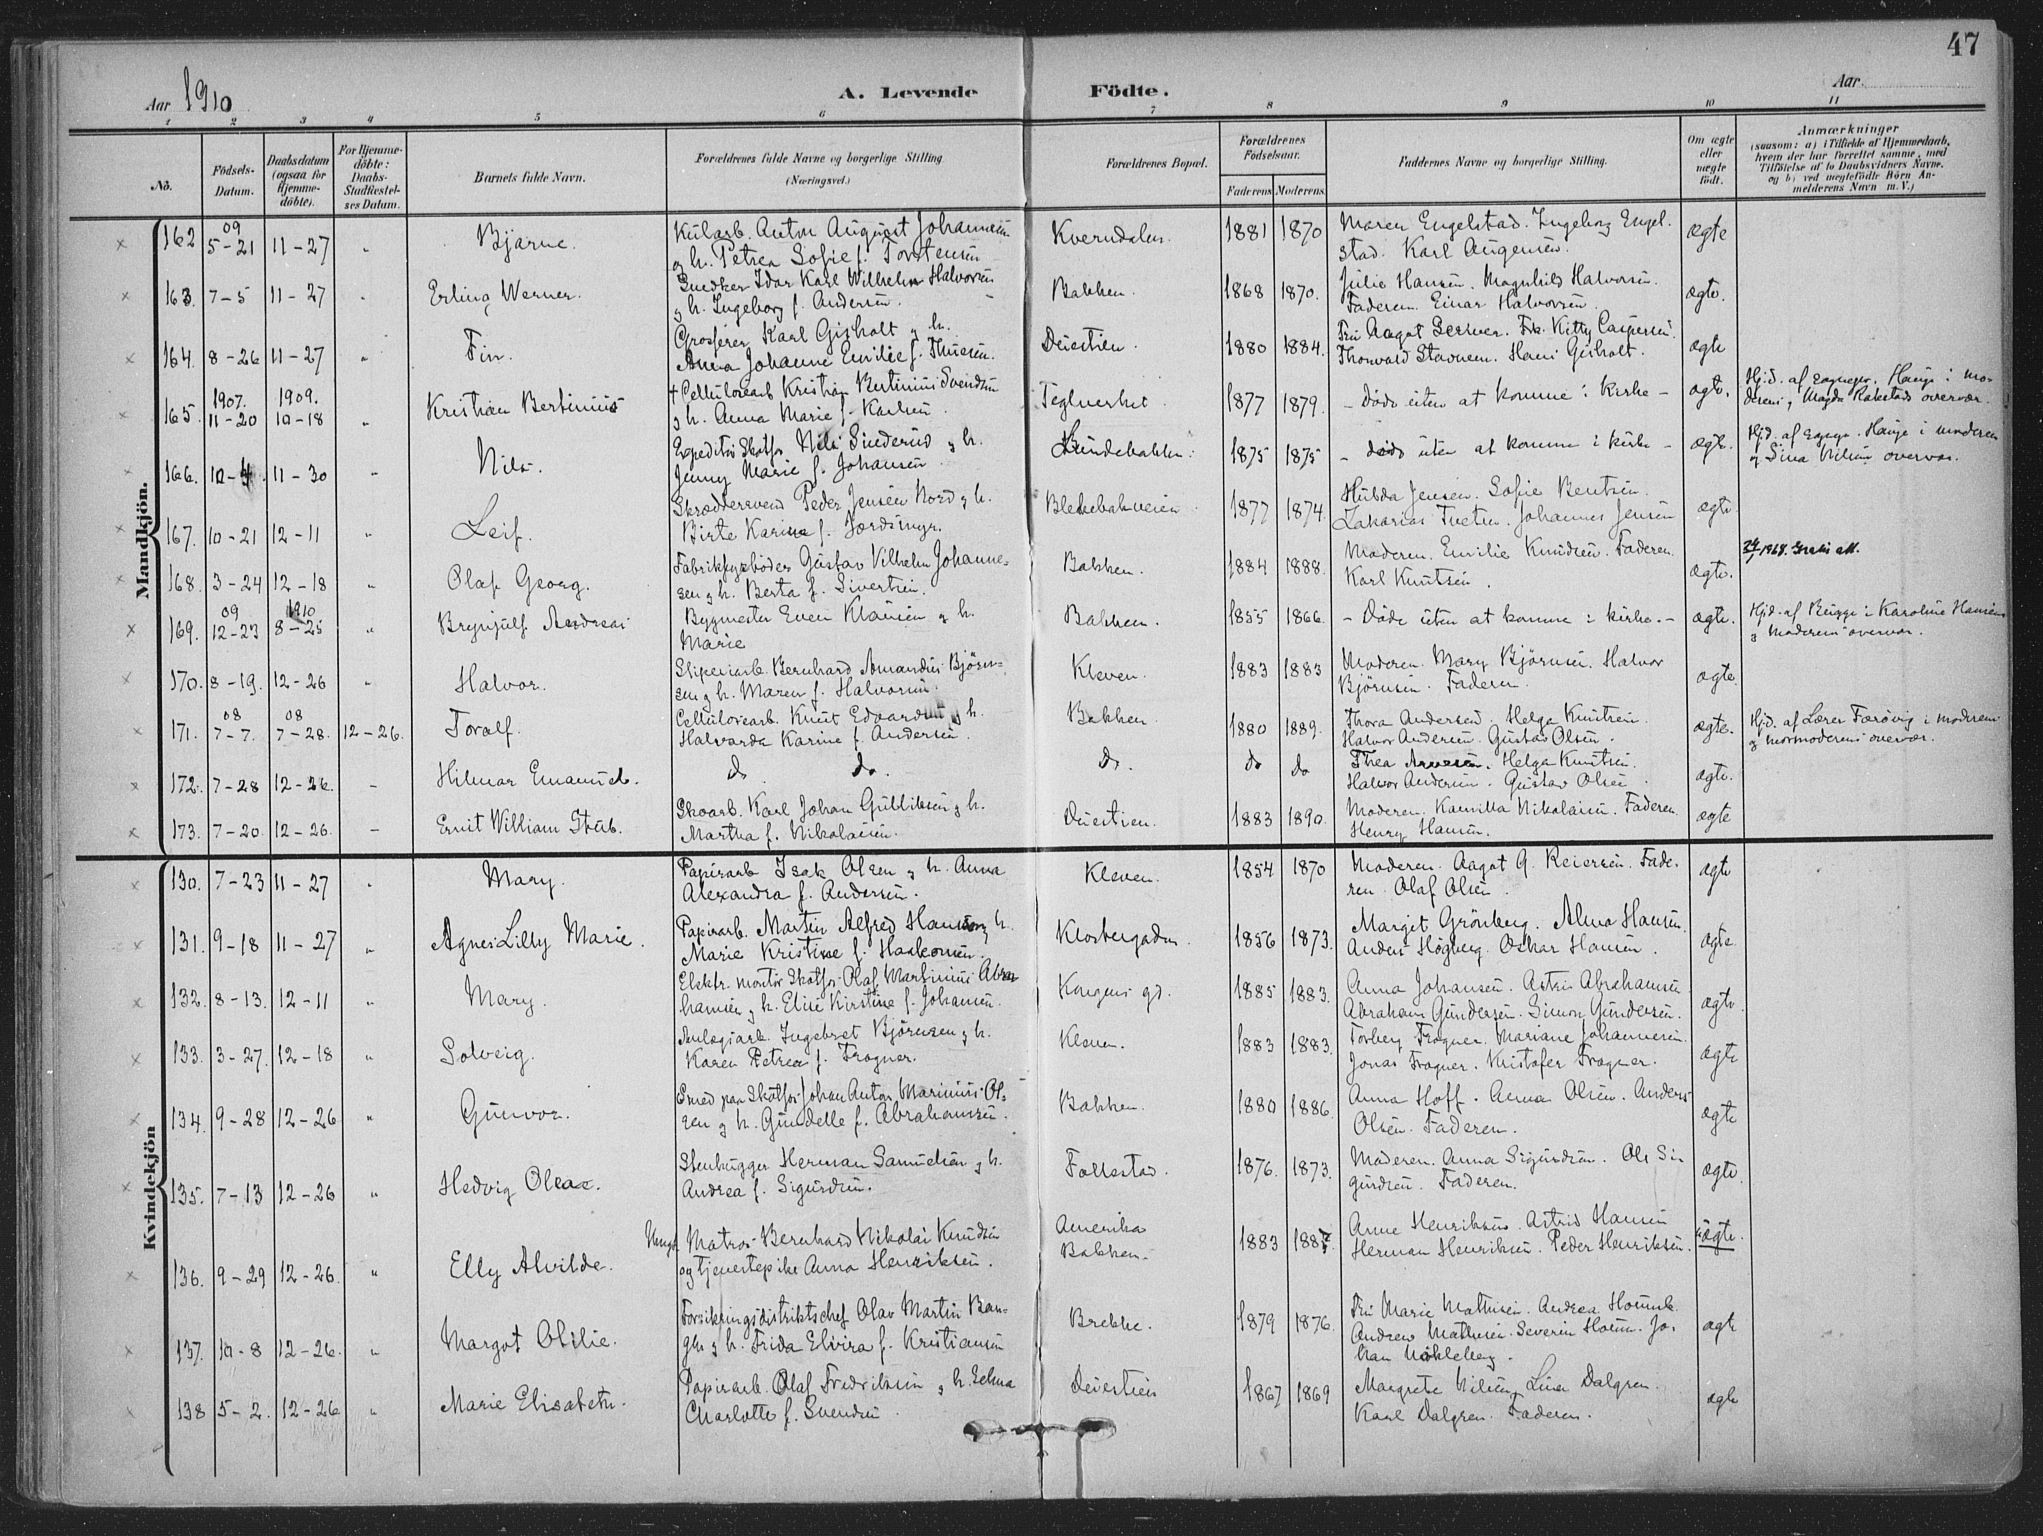 47
Aar 1910
A. Levende Födte.
Aar
1 2 3 4 5 6 7 8 9 10 11
No.
Födsels-Datum.
Daabsdatum (ogsaa for Hjemmedöbte).
For Hjemmedöbte: Daabs-Stadfestelses Datum.
Barnets fulde Navn.
Forældrenes fulde Navne og borgerlige Stilling (Næringsvei.)
Forældrenes Bopæl.
Forældrenes Födselsaar.
Faderens Moderens
Faddernes Navne og borgerlige Stilling.
Om ægte eller uægte født.
Anmærkninger
(saasom: a) i Tilfælde af Hjemmedaab, hvem der har forrettet samme, med Tilföielse af to Daabsvidners Navne, og b) ved uægtefödte Börn Anmelderens Navn m. V.)
Mandkjön.
162 09 5-21 11-27 " Bjarne. Anton August Johannesen Kverndalen. 1881 1870 Maren Engelstad. Ingeborg Engel- ægte
og h. Petrea Sofie f. Torstensen stad. Karl Augensen.
163. 7-5 11-27 " Erling Werner. Snedker Idar Karl Wilhelm Halvorsen Bakken. 1868 1870. Julie Hansen. Magnhild Halvorsen. ægte.
og h. Ingeborg f. Andersen. Faderen. Einar Halvorsen.
164. 8-26 11-27 " Fin. Grosserer Karl Gisholt og h. 1880 1884. Fru Aagot Scriver. Frk. Kitty Caspersen. ægte
Anna Johanne Emilie f. Thuesen. Thorvald Stavnem. Hans Gisholt.
165. 1907. 11-20 1909. 10-18 " Kristian Bertinius + Cellulosearb Kristian Bertinius Svendsen Teglverket 1877 1879. - Døde uten at komme i kirke - ægte. Hjd. af Hauge i mo-
og h. Anna Marie f. Karlsen. derens og Magda Rakstads overvær.
166. 10-4. 11-30 " Nils. Skotfos Nils og h. Lundebakken. 1875 1875 - døde uten at komme i kirke - ægte. Hjd. af Hauge i moderens
Jenny Marie f. Johansen og Sina Nilsens overvær.
167. 10-21 12-11 " Leif. Skræddersvend Peder Jensen Nord og h. Blekebakveien 1877 1874. Hulda Jensen. Sofie Bentsen. ægte
Birte Karine f. Zakarias Tveten. Johannes Jensen
168. 3-24 12-18 " Olaf Georg. Fabrikfyrbøder Gustav Vilhelm Johanne- Bakken. 1884 1888. Moderen. Emilie Knudsen. Faderen. ægte.
sen og h. Berta f. Sivertsen. Karl Knutsen.
169. 09 12-23 1910 8-25 " Brynjulf Andreas Bygmester Even Klausen og h. Bakken. 1855 1866. - Døde uten at komme i kirke. - ægte. Hjd. af Bugge i Karoline Hansens
Marie og moderens overvær.
170. 8-19. 12-26 " Halvor. Sliperiarb. Bernhard Amandus Bjørn- Kleven. 1883 1883 Moderen. Mary Bjørnsen. Halvor ægte.
sen og h. Maren f. Halvorsen. Bjørnsen. Faderen.
171. 08 7-7. 08 7-28. 12-26. Toralf. Cellulosearb. Knut Edvardsen og h. Bakken. 1880 1889. Thora Andersen. Helga Knutsen. ægte. Hjd. af Lærer Færøvig i moderens
Halvarda Karine f. Andersen. Halvor Andersen. Gustav Olsen. og mormoderens overvær.
172. 7-28 12-26. - Hilmar Emanuel. do do. do. do do Thea Helga Knutsen. ægte.
Halvor Andersen. Gustav Olsen.
173. 7-20. 12-26. - Ernst William Stub. Skoarb. Karl Johan Gulliksen og h. 1883 1890. Moderen. Kamilla Nikolaisen. Faderen. ægte
Martha f. Nikolaisen. Henry Hansen.
Kvindekjön
130. 7-23 11-27 " Mary. Papirarb Isak Olsen og h. Anna Kleven. 1854 1870 Moderen. Aagot G. Reiersen. Fade- ægte
Alexandra f. Andersen. ren. Olaf Olsen.
131. 9-18 11-27 " Agnes Lilly Marie. Papirarb. Martin Alfred Hansen og h. Klostergaden. 1856 1873. Margit Grönberg. Alma Hansen. ægte
Marie Kristine f. Haakonsen. Anders Högberg. Oskar Hansen.
132. 8-13. 12-11 " Mary. Elektr. montör Skotfos Olaf Martinius Abra- Kongens gd. 1885 1883. Anna Johansen. Astrid Abrahamsen ægte
hamsen og h. Elise Kirstine f. Johansen. Abraham Gundersen. Simon Gundersen.
133. 3-27. 12-18 " Solveig. Ingebret Bjørnsen og h. Kleven. 1883 1883. Torberg Fragner. Mariane Johannesen. ægte
Karen Petrea f. Frogner. Jonas Frogner. Kristofer Frogner.
134. 9-28 12-26 " Gunvor. Smed paa Skotfos Johan Anton Marinius Ol- Bakken. 1880 1886. Anna Hoff. Anna Olsen. Anders ægte
sen og h. Gundelle f. Abrahamsen. Olsen. Faderen.
135. 7-13 12-26 " Hedvig Olea. Stenhugger Herman Samuelsen og h. Follestad. 1876. 1873. Moderen. Anna Sigurdsen. Ole Si- ægte
Andrea f. Sigurdsen. gurdsen. Faderen.
136. 9-29 12-26. " Elly Alvilde. Ungk. Matros Bernhard Nikolai Knudsen Amerika 1883 1887. Anne Henriksen. Astrid Hansen uægte.
og tjenestepike Anna Henriksen. Bakken. Herman Henriksen. Peder Henriksen.
137. 10-8 12-26. " Margot Otilie. Forsikringsdistriktschef Olav Martin Ban- Brekke. 1879 1876. Fru Marie Mathisen. Andrea ægte
og h. Frida Elvira f. Kristiansen Andrew Mathisen. Severin Jo-
han
138 5-2. 12-26 " Marie Elisabeth. Papirarb. Olaf Fredriksen og h. Selma 1867 1869 Margrete Nilsen. Lina Dalgren. ægte
Charlotte f. Svendsen Karl Dalgren. Faderen.